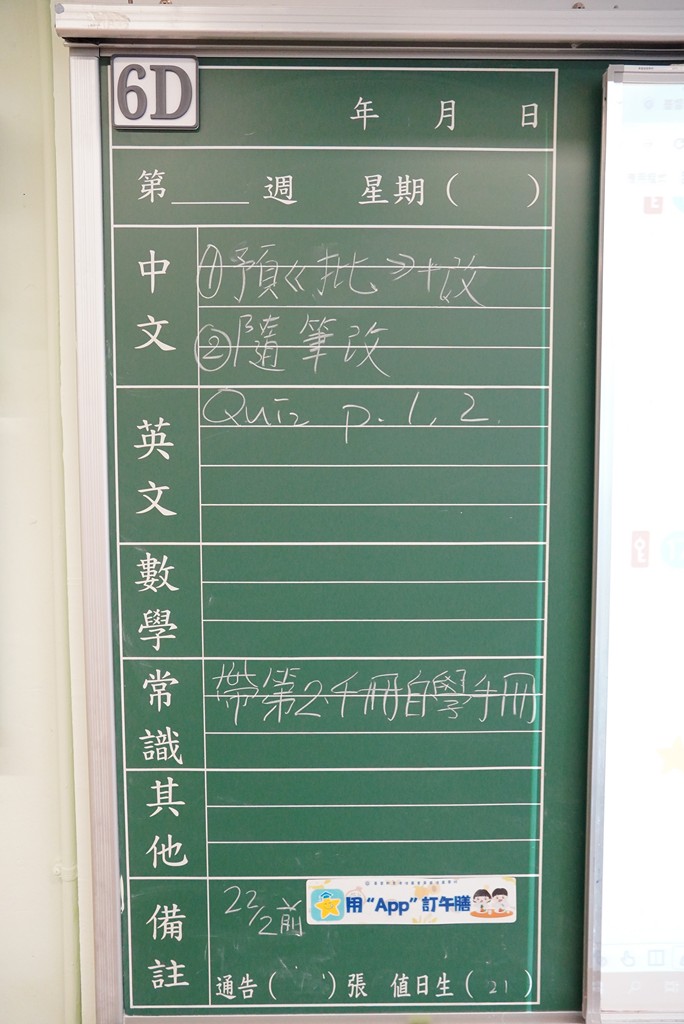 6D
年 月 日
第____週 星期( )
中文
①預《批》+改
②隨筆改
英文
Quiz p.1, 2.
數學
常識
帶第2千冊自學手冊
其他
備註
22/2前
用“App”訂午膳
通告( )張 值日生( 21 )